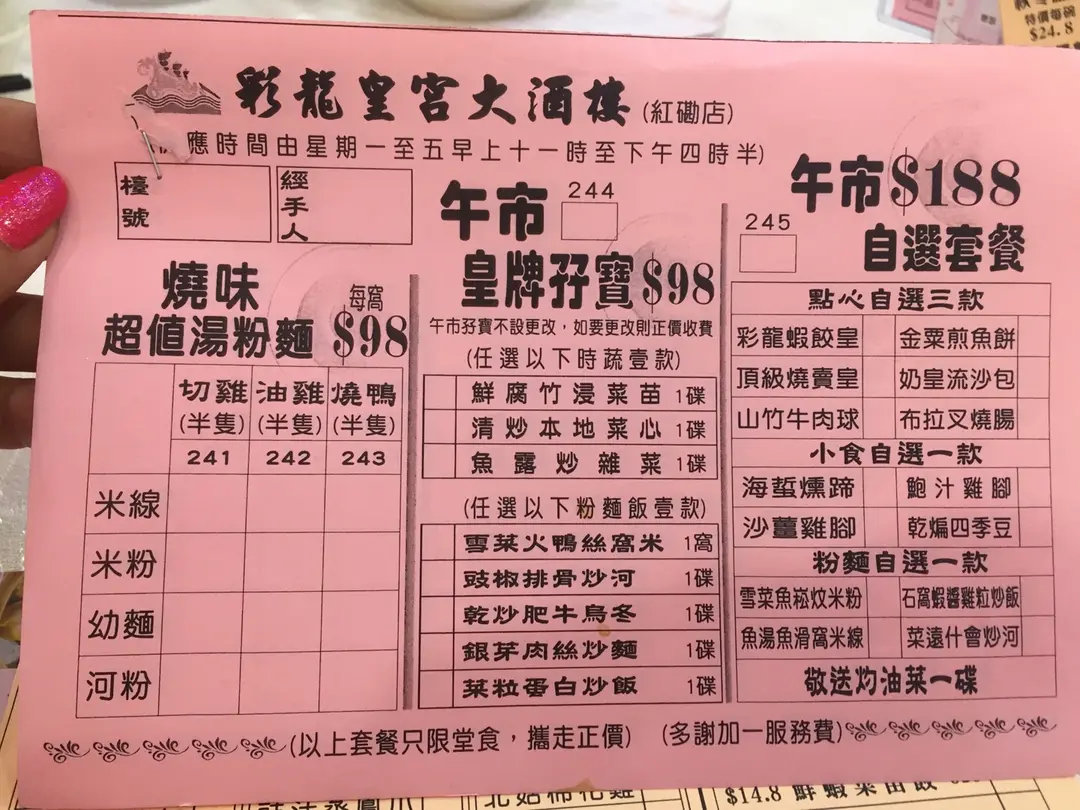 彩龍皇宮大酒樓 (紅磡店)
應時間由星期一至五早上十一時至下午四時半)
檯號
經手人
燒味
超值湯粉麵
每窩
$98
切雞 油雞 燒鴨
(半隻) (半隻) (半隻)
241 242 243
米線
米粉
幼麵
河粉
午市
244
皇牌孖寶 $98
午市孖寶不設更改，如要更改則正價收費
(任選以下時蔬壹款)
鮮腐竹浸菜苗 1碟
清炒本地菜心 1碟
魚露炒雜菜 1碟
(任選以下粉麵飯壹款)
雪菜火鴨絲窩米 1窩
豉椒排骨炒河 1碟
乾炒肥牛烏冬 1碟
銀芽肉絲炒麵 1碟
菜粒蛋白炒飯 1碟
午市$188
245
自選套餐
點心自選三款
彩龍蝦餃皇 金粟煎魚餅
頂級燒賣皇 奶皇流沙包
山竹牛肉球 布拉叉燒腸
小食自選一款
海蜇燻蹄 鮑汁雞腳
沙薑雞腳 乾煸四季豆
粉麵自選一款
雪菜魚崧炆米粉 石窩蝦醬雞粒炒飯
魚湯魚滑窩米線 菜遠什會炒河
敬送灼油菜一碟
(以上套餐只限堂食，攜走正價) (多謝加一服務費)
特價每碗
$24.8
$14.8 鮮蝦菜苗餃